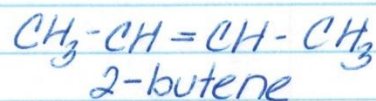 CH₃-CH=CH-CH₃
2-butene